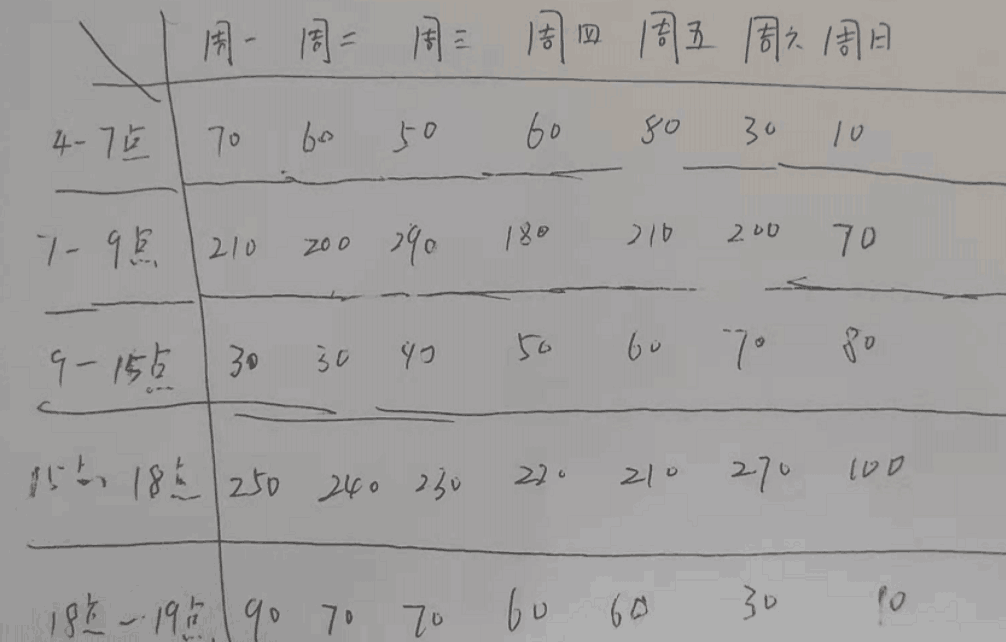 周一 周二 周三 周四 周五 周六 周日
4-7点 70 60 50 60 80 30 10
7-9点 210 200 290 180 210 200 70
9-15点 30 30 40 50 60 70 80
15点-18点 250 240 230 220 210 270 100
18点-19点 90 70 70 60 60 30 10